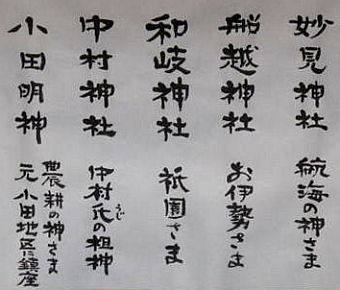 妙見神社 航海の神さま
船越神社 お伊勢さま
和岐神社 祇園さま
中村神社 中村氏の祖神
うじ
小田明神 農耕の神さま
元小田地区に鎮座